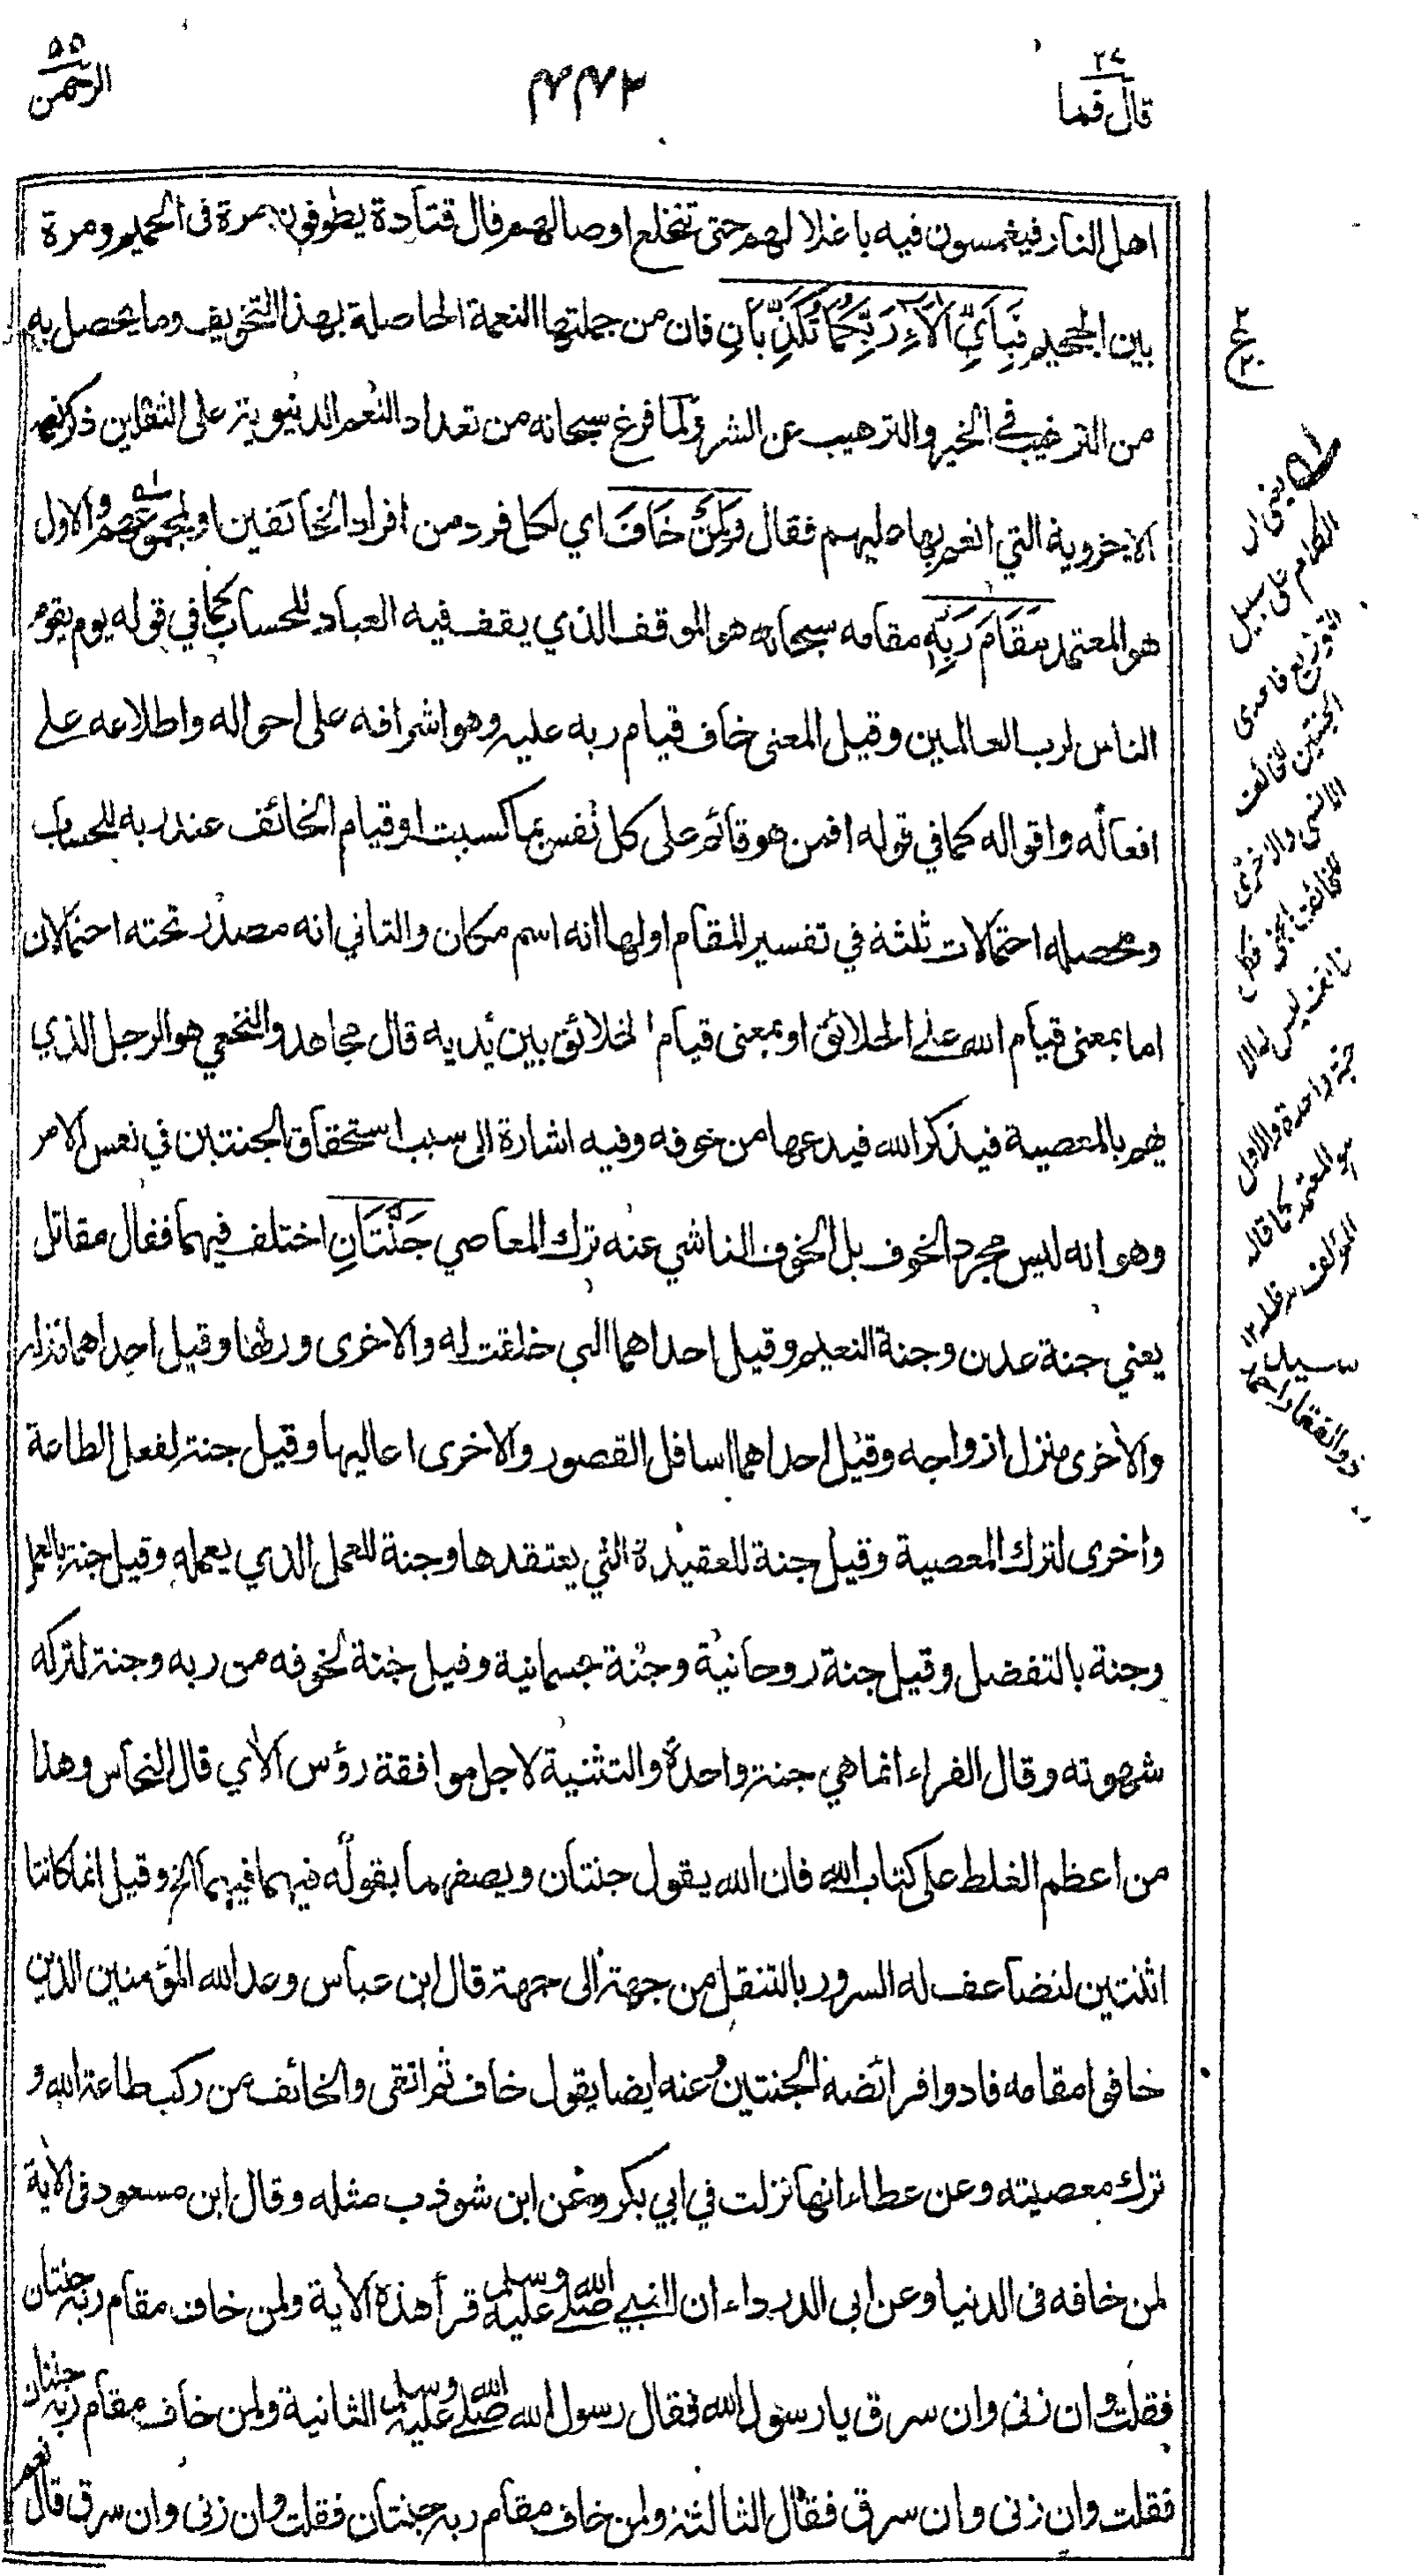 قال فما ٢٧
٤٤٢
الرحمن ٥٥
اهل النار فيغمسون فيه باغلالهم حتى تنخلع اوصالهم قال قتادة يطوفون مرة في الحميم ومرة
بين الجحيم فَبِأَيِّ آلَاءِ رَبِّكُمَا تُكَذِّبَانِ فان من جملتها النعمة الحاصلة بهذا التخويف وما يحصل به
من الترغيب في الخير والترهيب عن الشر ولما فرغ سبحانه من تعداد النعم الدنيوية على الثقلين ذكر نعمه
الاخروية التي انعم بها عليهم فقال وَلِمَنْ خَافَ اي لكل فرد من افراد الخائفين او لمجموعهم والاول
هو المعتمد مَقَامَ رَبِّهِ مقامه سبحانه هو الموقف الذي يقف فيه العباد للحساب كما في قوله يوم يقوم
الناس لرب العالمين وقيل المعنى خاف قيام ربه عليه وهو اشرافه على احواله واطلاعه على
افعاله واقواله كما في قوله افمن هو قائم على كل نفس بما كسبت او قيام الخائف عند ربه للحساب
ومحصله احتمالات ثلثة في تفسير المقام اولها انه اسم مكان والثاني انه مصدر تحته احتمالان
اما بمعنى قيام الله على الخلائق او بمعنى قيام الخلائق بين يديه قال مجاهد والنخعي هو الرجل الذي
يهم بالمعصية فيذكر الله فيدعها من خوفه وفيه اشارة الى سبب استحقاق الجنتين في نفس الامر
وهو انه ليس مجرد الخوف بل الخوف الناشي عنه ترك المعاصي جَنَّتَانِ اختلف فيهما فقال مقاتل
يعني جنة عدن وجنة النعيم وقيل احداهما التي خلقت له والاخرى ورثها وقيل احداهما منزله
والاخرى منزل ازواجه وقيل احداهما اسافل القصور والاخرى اعاليها وقيل جنة لفعل الطاعة
واخرى لترك المعصية وقيل جنة للعقيدة التي يعتقدها وجنة للعمل الذي يعمله وقيل جنة بالعمل
وجنة بالتفضل وقيل جنة روحانية وجنة جسمانية وقيل جنة لخوفه من ربه وجنة لتركه
شهوته وقال الفراء انما هي جنة واحدة والتثنية لاجل موافقة رؤس الآي قال النحاس وهذا
من اعظم الغلط على كتاب الله فان الله يقول جنتان ويصفهما بقوله فيهما فيهما الخ وقيل انما كانتا
اثنتين لتضاعف له السرور بالتنقل من جهة الى جهة قال ابن عباس وعد الله المؤمنين الذين
خافوا مقامه فادوا فرائضه الجنتين وعنه ايضا يقول خاف ثم اتقى والخائف من ركب طاعة الله و
ترك معصيته وعن عطاء انها نزلت في ابي بكر وعن ابن شوذب مثله وقال ابن مسعود في الاية
لمن خافه في الدنيا وعن ابي الدرداء ان النبي صلى الله عليه وسلم قرأ هذه الآية ولمن خاف مقام ربه جنتان
فقلت وان زنى وان سرق يا رسول الله فقال رسول الله صلى الله عليه وسلم الثانية ولمن خاف مقام ربه جنتان
فقلت وان زنى وان سرق فقال الثالثة ولمن خاف مقام ربه جنتان فقلت وان زنى وان سرق قال نعم
ع
يعني ان
الكلام على سبيل
التوزيع فاحدى
الجنتين للخائف
الانسي والاخرى
للخائف الجني فكل
خائف ليس له الا
جنة واحدة والاول
هو المعتمد كما قاله
المؤلف مد ظله ١٢
سيد
ذو الفقار احمد